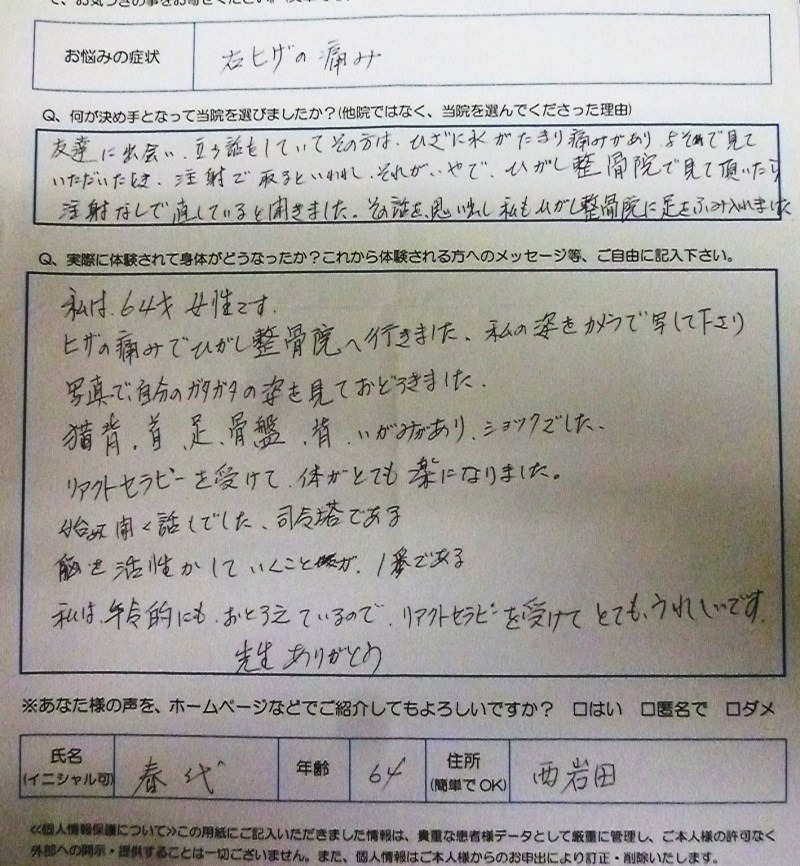 お悩みの症状 右ヒザの痛み
Q、何が決め手となって当院を選びましたか？(他院ではなく、当院を選んでくださった理由)
友達に出会い、立ち話をしていてその方は、ひざに水がたまり痛みがあり、よそで見て
いただいたとき、注射で取るといわれ、それがいやで、ひがし整骨院で見て頂いたら
注射なしで直していると聞きました。その話を思い出し私もひがし整骨院に足をふみ入れました
Q、実際に体験されて身体がどうなったか？これから体験される方へのメッセージ等、ご自由に記入下さい。
私は、64才 女性です。
ヒザの痛みでひがし整骨院へ行きました、私の姿をカメラで写して下さり
写真で、自分のガタガタの姿を見ておどろきました。
猫背、首、足、骨盤、背、いがみがあり、ショックでした、
リアクトセラピーを受けて、体がとても楽になりました。
始め聞く話しでした、司令塔である
脳を活性かしていくことが、1番である
私は、年令的にも、おとろえているので、リアクトセラピーを受けてとても、うれしいです。
先生ありがとう
※あなた様の声を、ホームページなどでご紹介してもよろしいですか？ □はい □匿名で □ダメ
氏名 (イニシャル可) 春代 年齢 64 住所 (簡単でOK) 西岩田
≪個人情報保護について≫この用紙にご記入いただきました情報は、貴重な患者様データとして厳重に管理し、ご本人様の許可なく
外部への開示・提供することは一切ございません。また、個人情報はご本人様からのお申出により訂正・削除いたします。